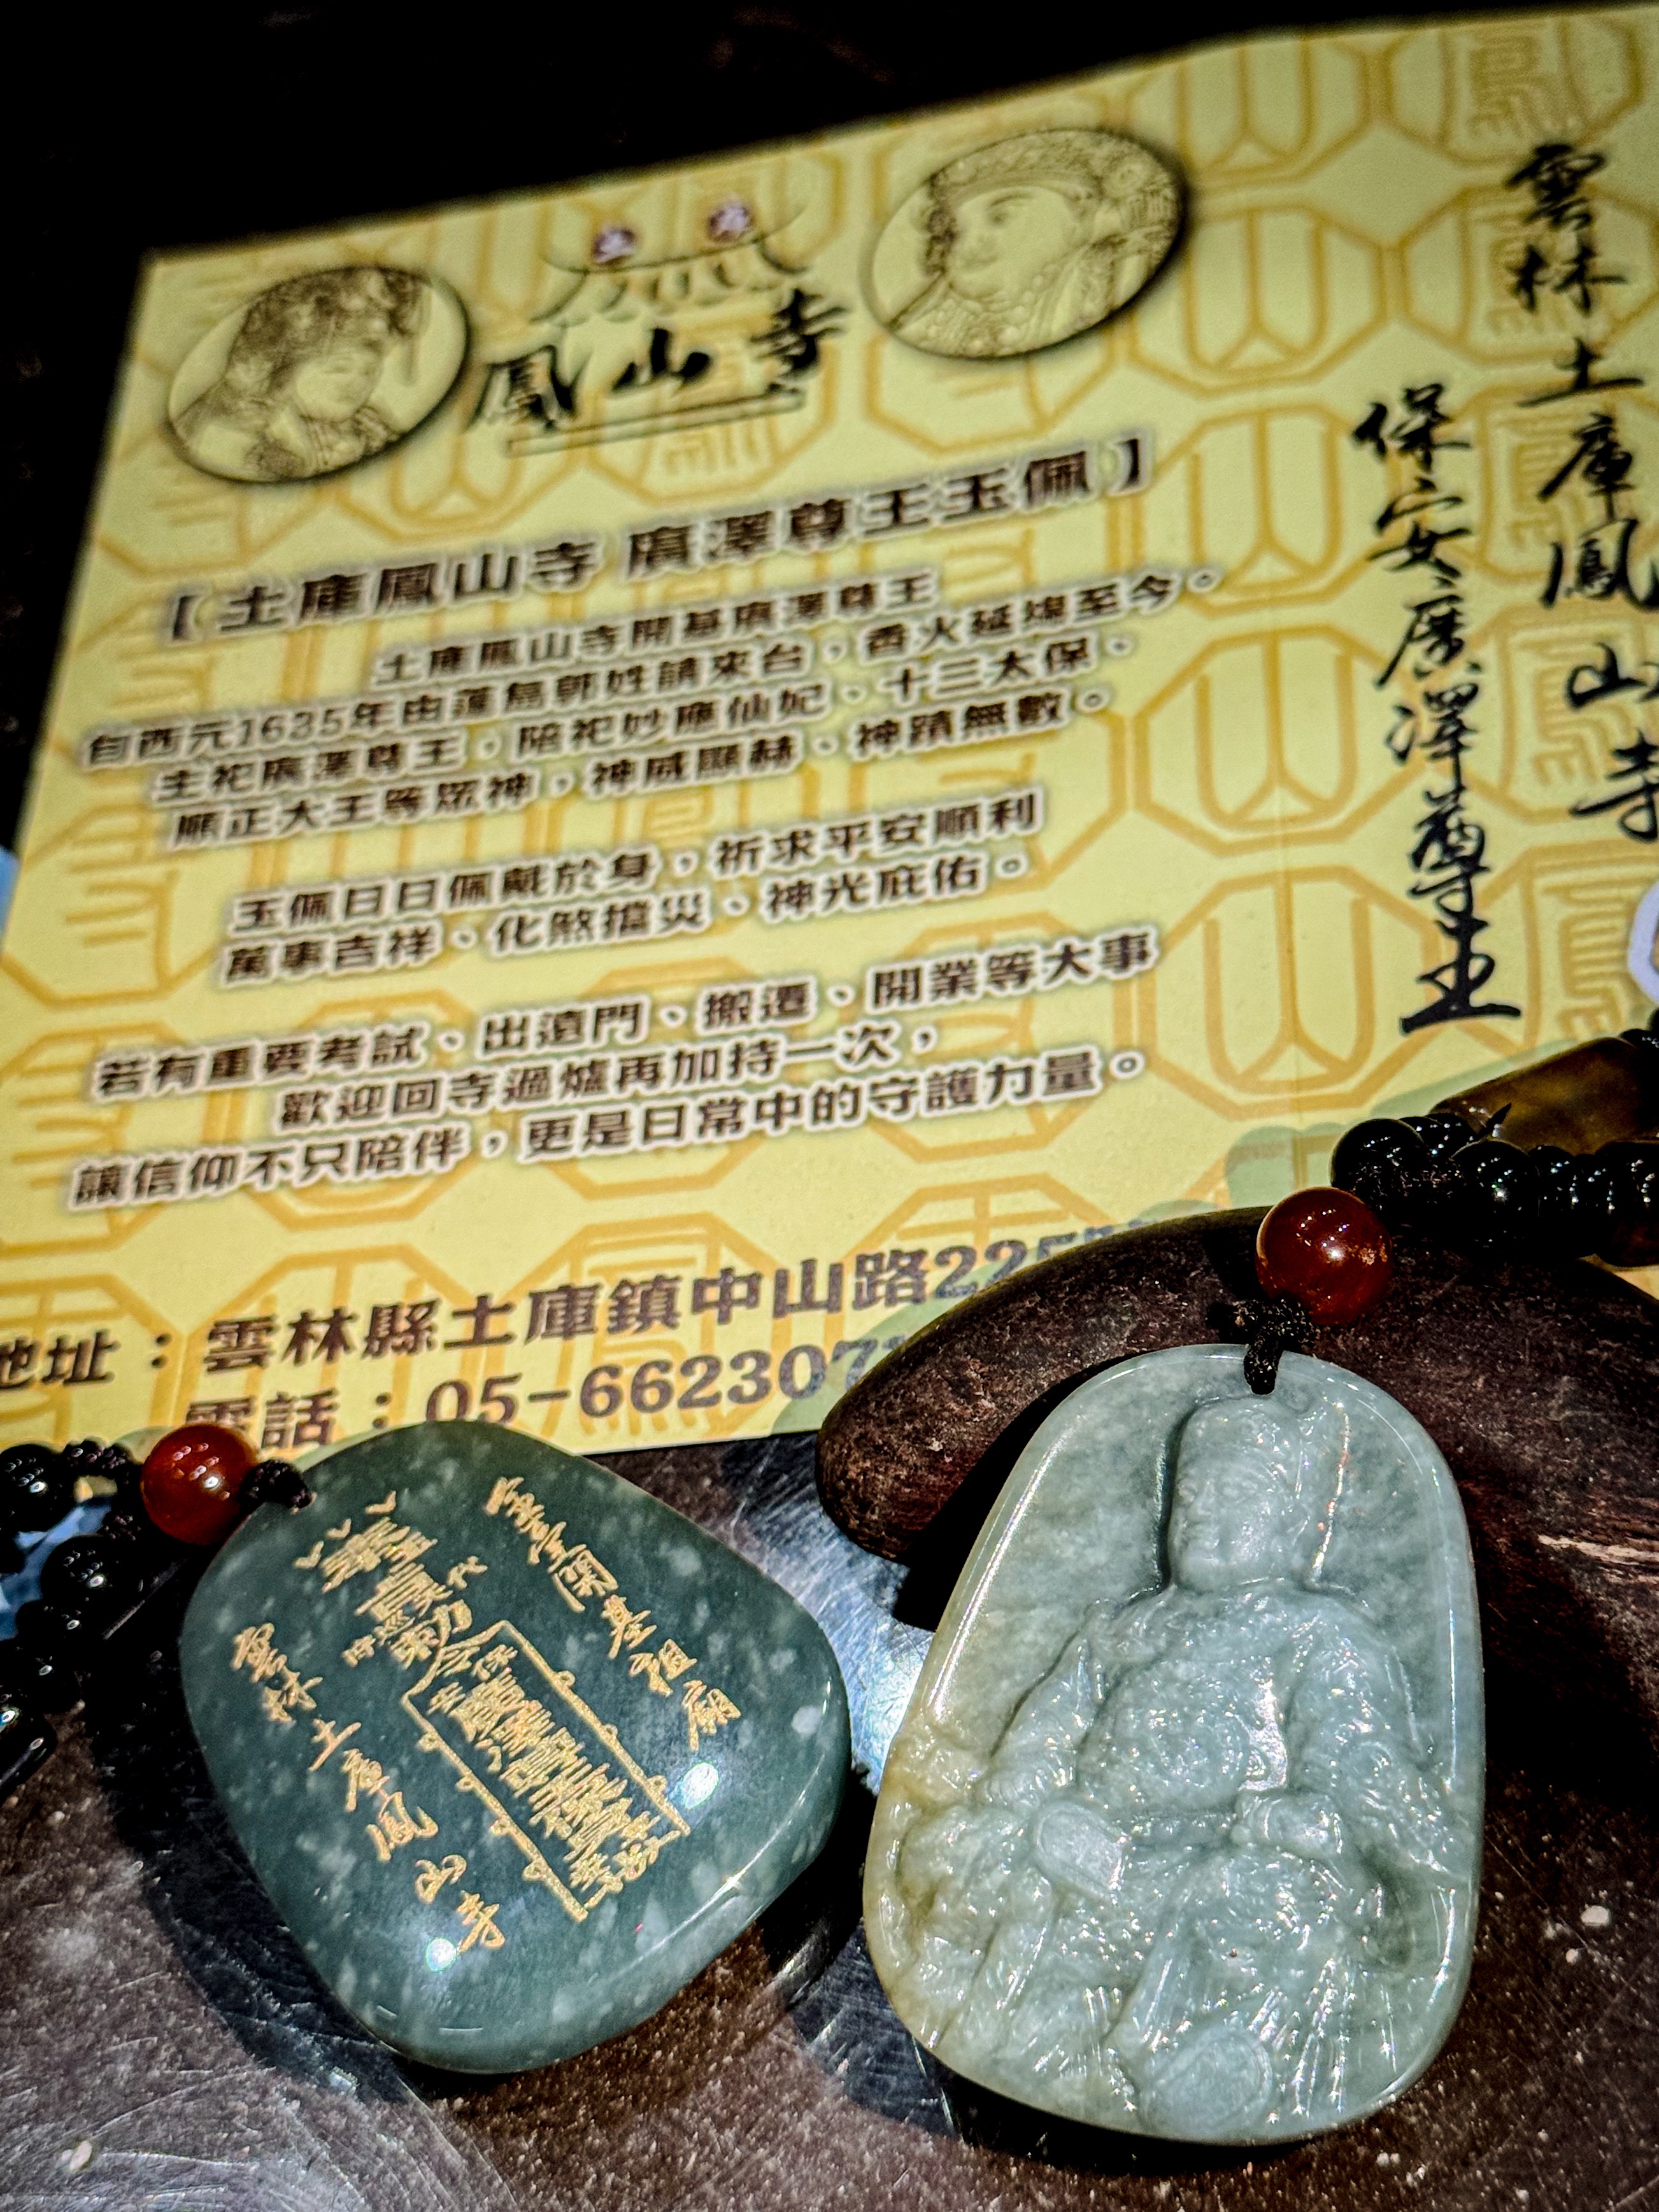 鳳山寺
【土庫鳳山寺 廣澤尊王玉佩】
土庫鳳山寺開基廣澤尊王
自西元1635年由蓬島郭姓請來台，香火延綿至今。
主祀廣澤尊王，陪祀妙應仙妃、十三太保、
順正大王等眾神，神威顯赫、神蹟無數。
玉佩日日佩戴於身，祈求平安順利
萬事吉祥、化煞擋災、神光庇佑。
若有重要考試、出遠門、搬遷、開業等大事
歡迎回寺過爐再加持一次，
讓信仰不只陪伴，更是日常中的守護力量。
地址：雲林縣土庫鎮中山路225
電話：05-662307
雲林土庫鳳山寺
保安廣澤尊王
全台開基祖廟
雲林土庫鳳山寺